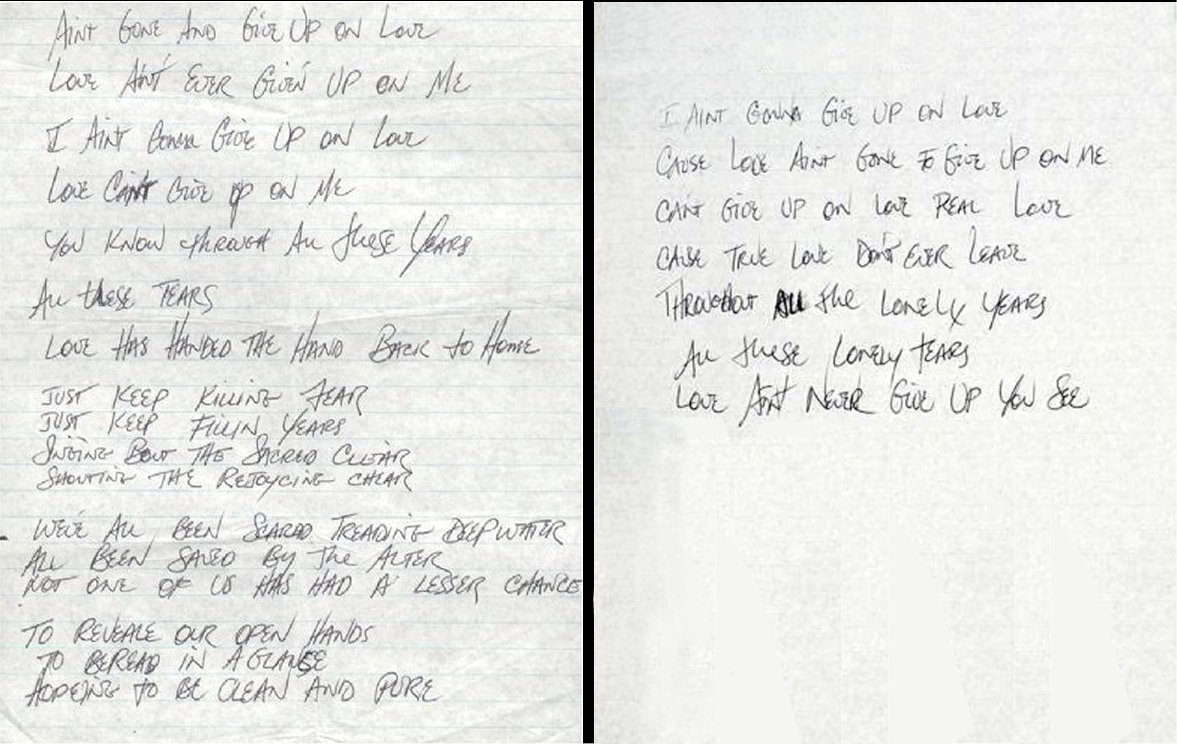 Aint Gone And Give Up On Love
Love Ain't Ever Given Up On Me
I Aint Gonna Give Up On Love
Love Can't Give Up On Me
You Know Through All These Years
All these Tears
Love Has Handed The Hand Back to Home
Just Keep Killing Fear
Just Keep Fillin Years
Singing Bout The Sacred Clear
Shouting The Rejoycing Chear
We've All Been Scared Treading Deep Water
All Been Saved By The Alter
Not One Of Us Has Had A Lesser Chance
To Reveale Our Open Hands
To Beread In A Glanse
Hopeing To Be Clean And Pure
I Aint Gonna Give Up On Love
Cause Love Aint Gone To Give Up On Me
Can't Give Up On Love Real Love
Cause True Love Don't Ever Leave
Throughout All The Lonely Years
All These Lonely Tears
Love Ain't Never Give Up You See